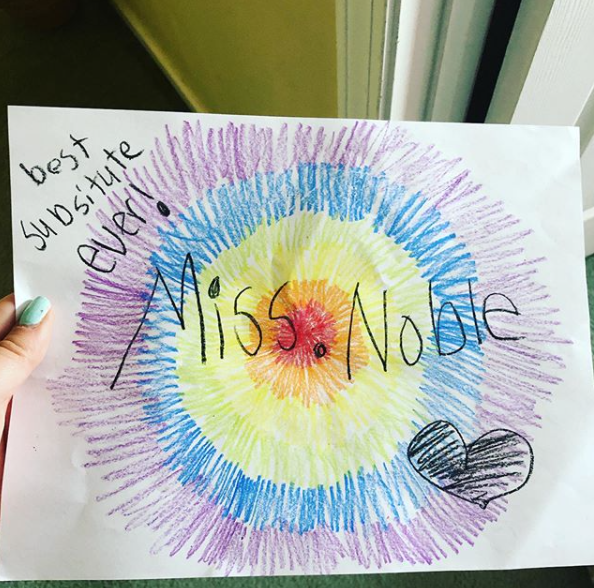 best
subsitute
ever!
Miss. Noble